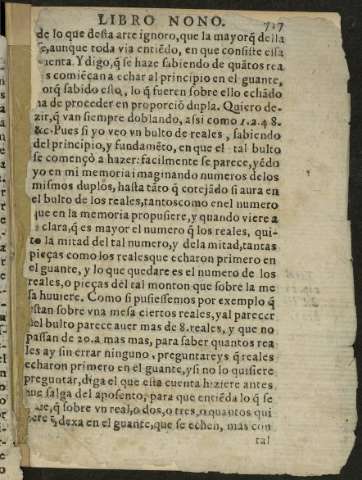 LIBRO NONO. 717
de lo que desta arte ignoro, que la mayorq̃ della
es, aunque toda via entiẽdo, en que consiste esta
cuenta. Y digo, q̃ se haze sabiendo de quãtos rea
es comiẽcan a echar al principio en el guante,
porq̃ sabido esso, lo q̃ fueren sobre ello echãdo
ha de proceder en proporciõ dupla. Quiero de-
zir, q̃ van siempre doblando, assi como 1.2.4 8.
&c. Pues si yo veo vn bulto de reales, sabiendo
del principio, y fundamẽto, en que el tal bulto
se començò a hazer: facilmente se parece, yẽdo
yo en mi memoria imaginando numeros de los
mismos duplos, hasta tãto q̃ cotejãdo si aura en
el bulto de los reales, tantos como en el numero
que en la memoria propusiere, y quando viere a
la clara, q̃ es mayor el numero q̃ los reales, qui-
to la mitad del tal numero, y de la mitad, tantas
pieças como los reales que echaron primero en
el guante, y lo que quedare es el numero de los
reales, o pieças del tal monton que sobre la me
sa huuiere. Como si pusiessemos por exemplo q̃
estan sobre vna mesa ciertos reales, y al parecer
del bulto parece auer mas de 8. reales, y que no
passan de 20. a mas mas, para saber quantos rea
les ay sin errar ninguno, preguntareys q̃ reales
echaron primero en el guante, y si no lo quisiere
preguntar, diga el que esta cuenta hiziere antes
que salga del aposento, para que entiẽda lo q̃ se
q̃ sobre vn real, o dos, o tres, o quantos qui
dexa en el guante, que se echen, mas con
tal